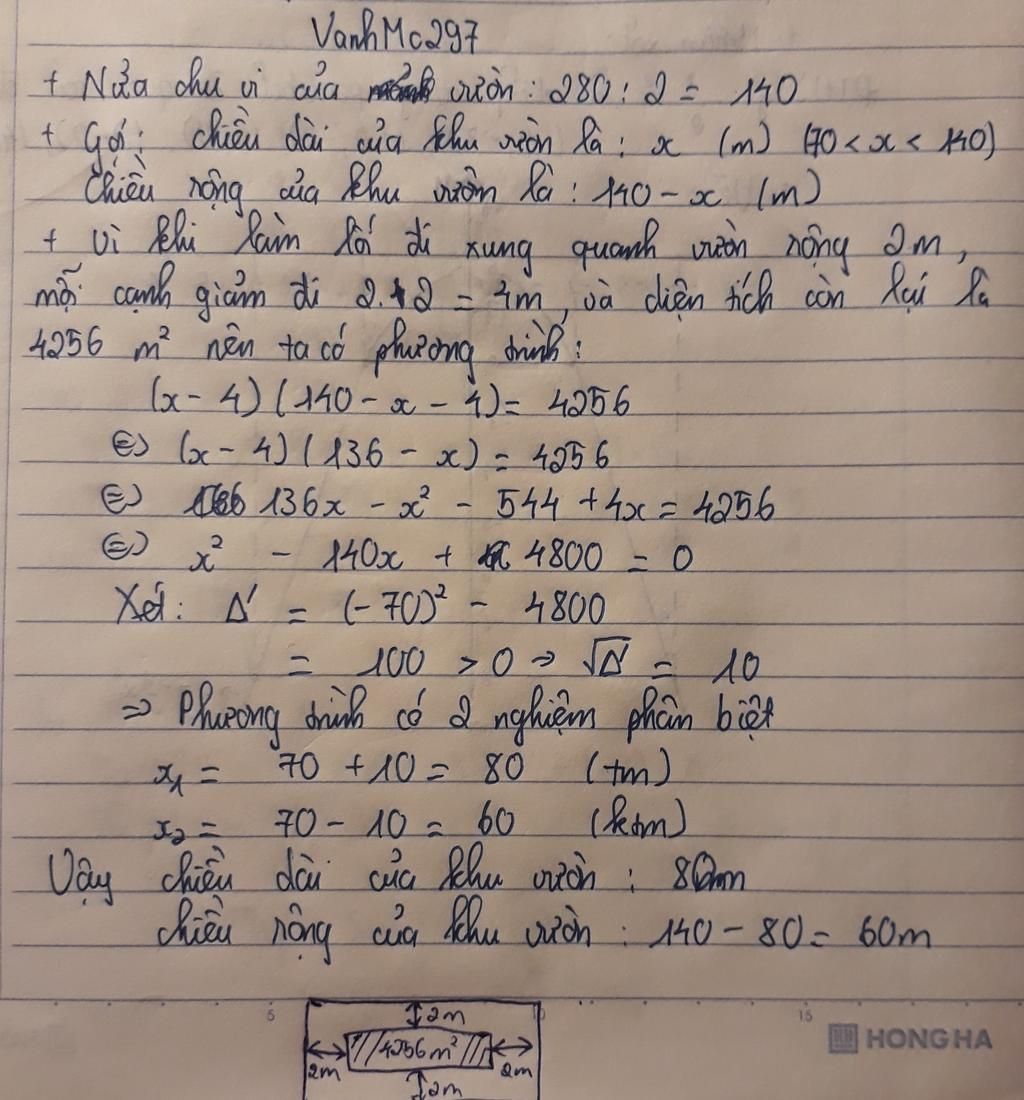 VanhMc297
+ Nửa chu vi của vườn : 280 : 2 = 140
+ Gọi : chiều dài của khu vườn là : x (m) (70 < x < 140)
Chiều rộng của khu vườn là : 140 - x (m)
+ Vì khi làm lối đi xung quanh vườn rộng 2m,
mỗi cạnh giảm đi 2.2 = 4m, và diện tích còn lại là
4256 m² nên ta có phương trình :
(x - 4)(140 - x - 4) = 4256
⇔ (x - 4)(136 - x) = 4256
⇔ 136x - x² - 544 + 4x = 4256
⇔ x² - 140x + 4800 = 0
Xét : Δ' = (-70)² - 4800
= 100 > 0 ⇒ √Δ' = 10
⇒ Phương trình có 2 nghiệm phân biệt
x₁ = 70 + 10 = 80 (tm)
x₂ = 70 - 10 = 60 (ktm)
Vậy chiều dài của khu vườn : 80m
chiều rộng của khu vườn : 140 - 80 = 60m
5 10 15
2m
4256m²
2m 2m
2m
HONG HA